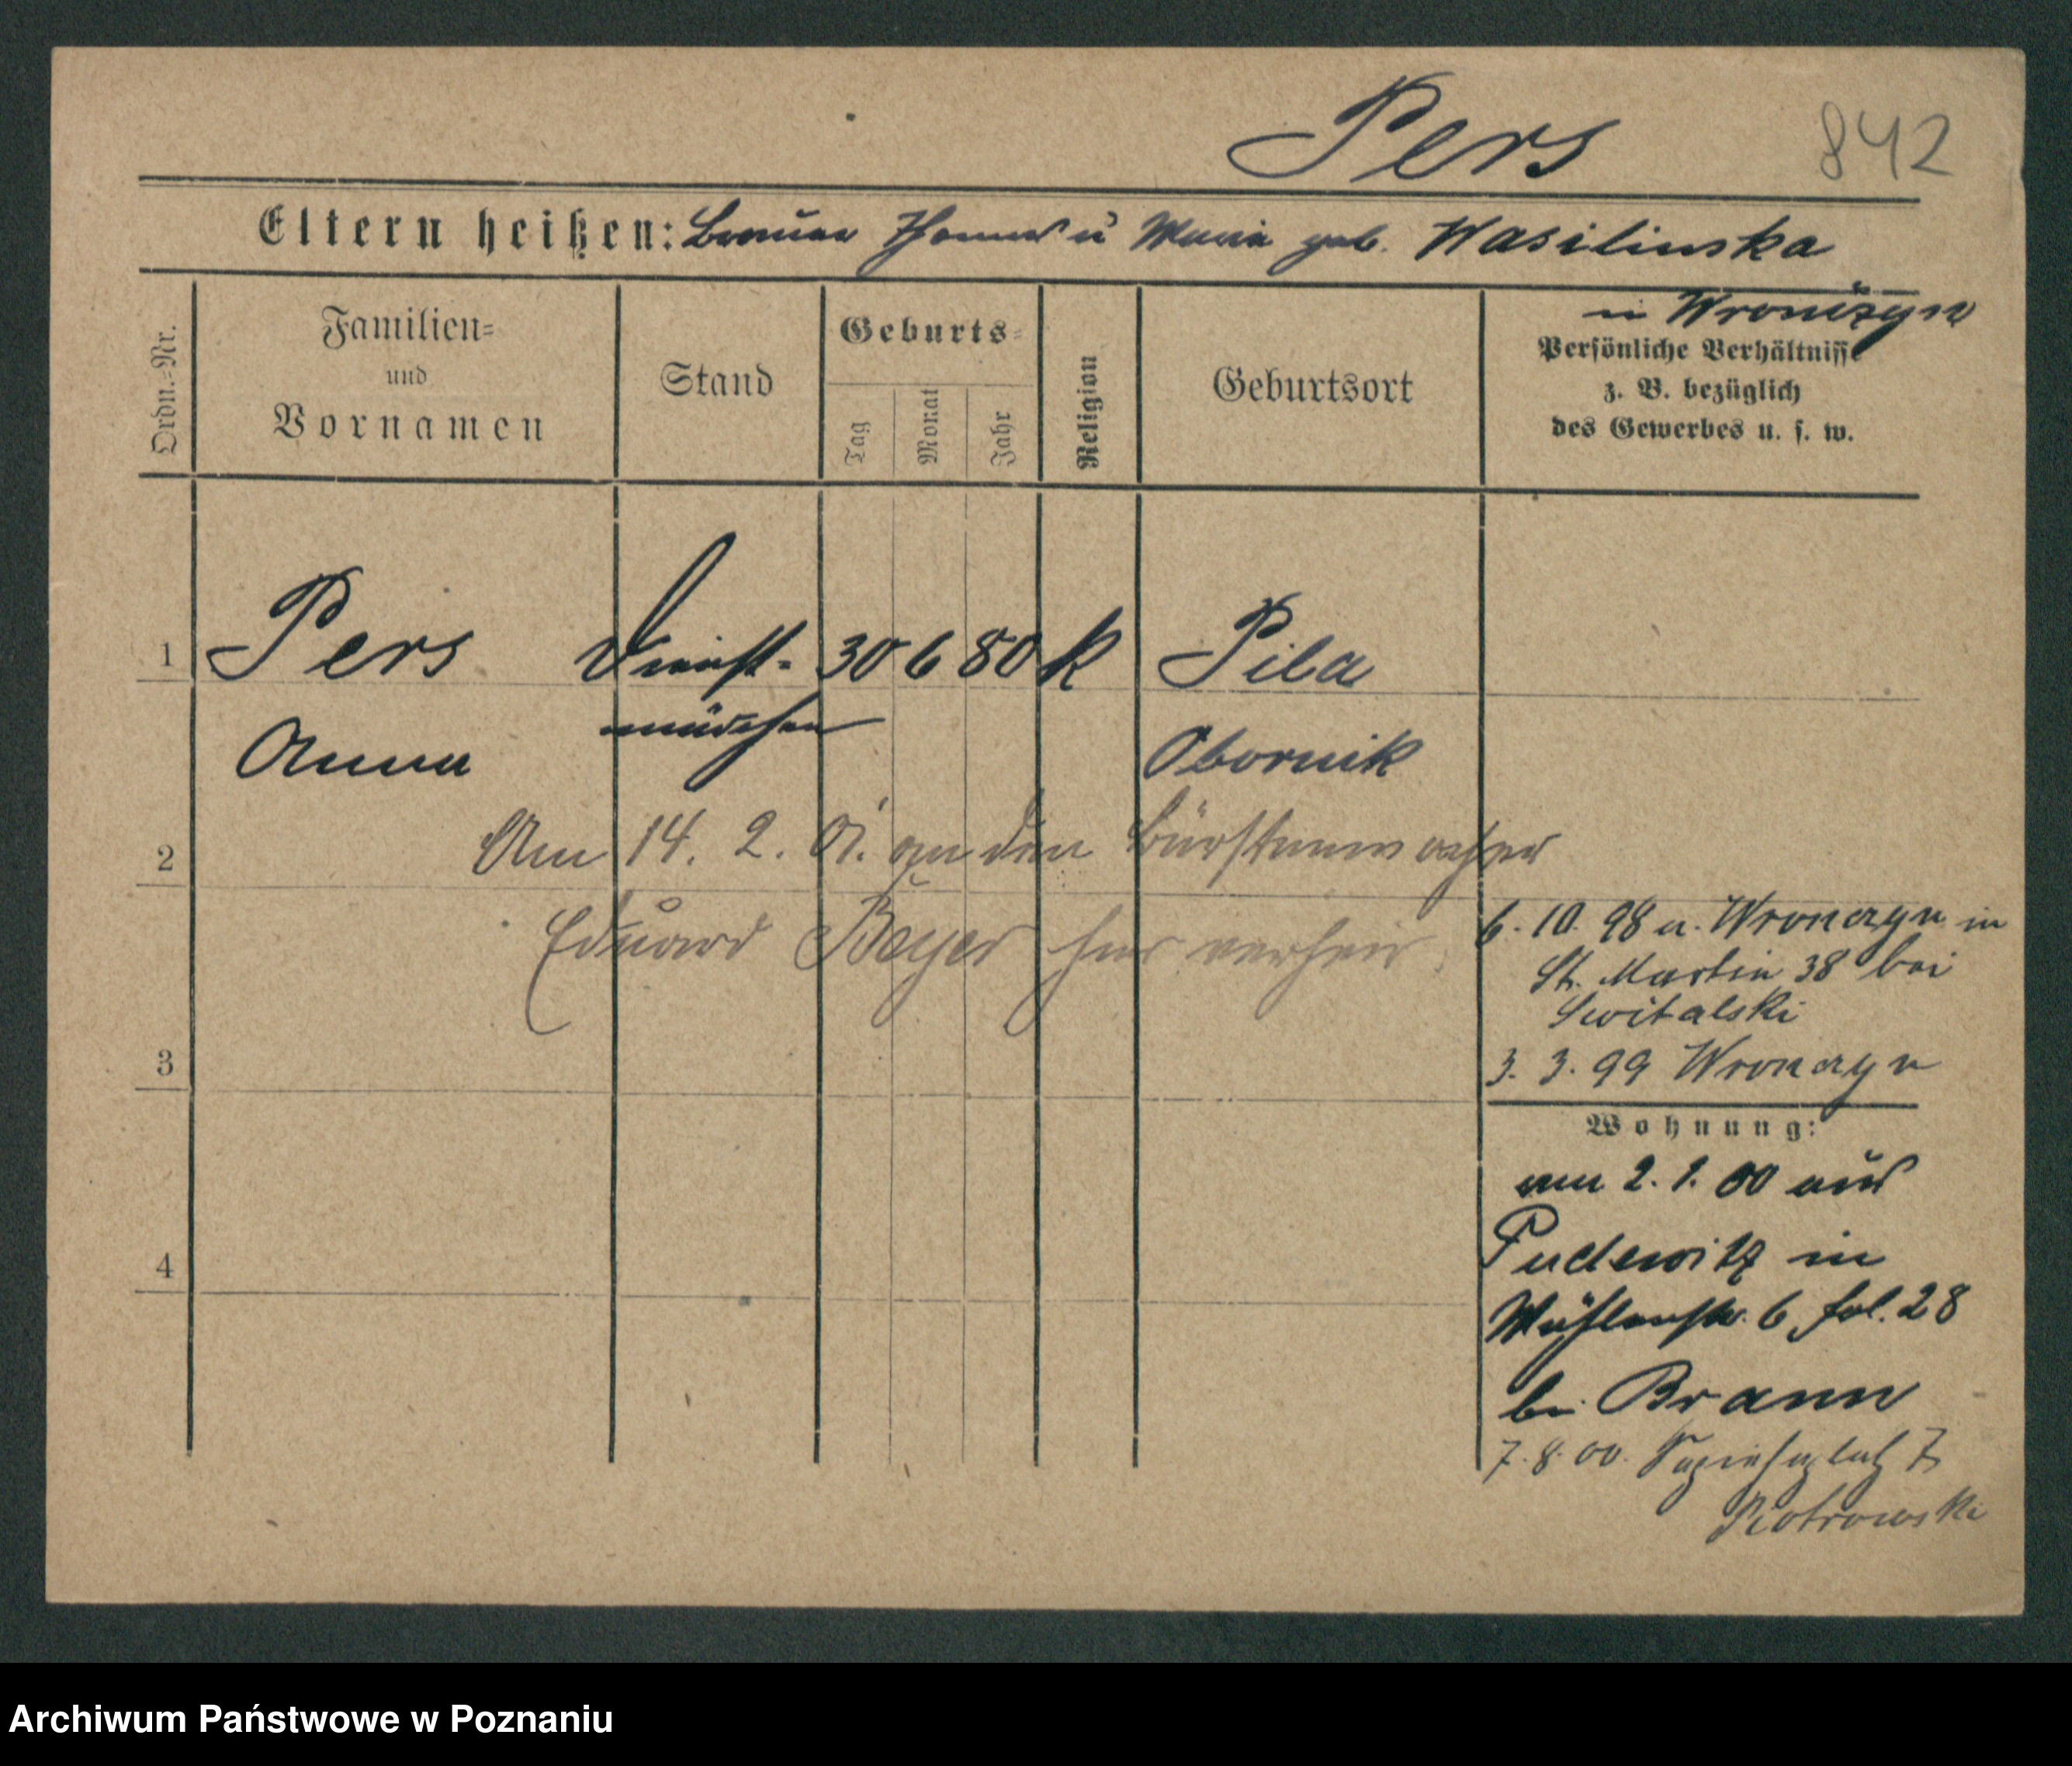 Pers 842
Eltern heißen: Brauer Thomas u Maria geb. Wasilinska
in Wronczyn
Ordn.-Nr.
Familien-
und
Vornamen
Stand
Geburts-
Tag
Monat
Jahr
Religion
Geburtsort
Persönliche Verhältnisse
z. B. bezüglich
des Gewerbes u. s. w.
1 Pers Dienst- 30 6 80 k Pila
mädchen
Anna Obornik
2 Am 14. 2. 01. an den Bürstenmacher
Eduard Beyer hier verheir.
6. 10. 98 a. Wronczyn in
St. Martin 38 bei
Switalski
3 3. 3. 99 Wronczyn
Wohnung:
am 2. 1. 00 aus
4 Pudewitz in
Mühlenstr. 6 fol. 28
bei Brann
7. 8. 00. Sapiehaplatz 7
Piotrowski
Archiwum Państwowe w Poznaniu